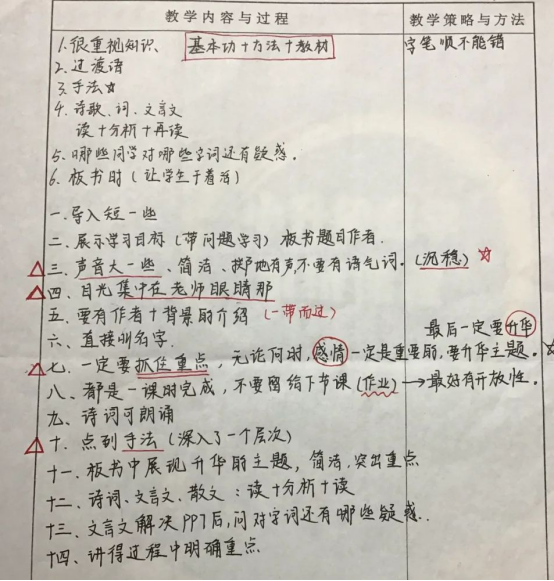 教学内容与过程 教学策略与方法
1.很重视知识、 基本功+方法+教材 字笔顺不能错
2.过渡语
3.手法☆
4.诗歌、词、文言文
读+分析+再读
5.哪些同学对哪些字词还有疑惑。
6.板书时(让学生干着活)
一.导入短一些
二、展示学习目标(带问题学习)板书题目作者.
△三.声音大一些、简洁、掷地有声不要有语气词.(沉稳)☆
△四、目光集中在老师眼睛那
五、要有作者+背景的介绍(一带而过)
六、直接叫名字. 最后一定要升华
△七、一定要抓住重点,无论何时,感情一定是重要的,要升华主题。☆
八、都是一课时完成,不要留给下节课(作业)→最好有开放性。
九、诗词可朗诵
△十、点到手法(深入了一个层次)
十一、板书中展现升华的主题,简洁.突出重点
十二、诗词、文言文、散文:读+分析+读
十三、文言文解决PPT后,问对字词还有哪些疑惑..
十四、讲得过程中明确重点